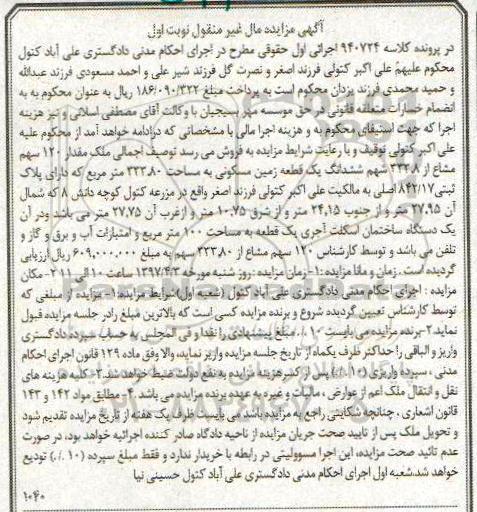 آگهی مزایده مال غیر منقول نوبت اول
در پرونده کلاسه ۹۴۰۷۲۴ اجرائی اول حقوقی مطرح در اجرای احکام مدنی دادگستری علی آباد کتول
محکوم علیهم علی اکبر کتولی فرزند اصغر و نصرت گل فرزند شیر علی و احمد مسعودی فرزند عبدالله
و حمید محمدی فرزند یزدان محکوم است به پرداخت مبلغ ۱۸۶/۰۹۰/۳۲۲ ریال به عنوان محکوم به به
انضمام خسارات متعلقه قانونی در حق موسسه مهر بسیجیان با وکالت آقای مصطفی اسلانی و نیز هزینه
اجرا که جهت استیفای محکوم به و هزینه اجرا مالی با مشخصاتی که در ادامه خواهد آمد از محکوم علیه
علی اکبر کتولی توقیف و با رعایت شرایط مزایده به فروش می رسد توصیف اجمالی ملک مقدار ۱۲۰ سهم
مشاع از ۳۳۳.۸ سهم ششدانگ یک قطعه زمین مسکونی به مساحت ۳۳۳.۸۰ متر مربع که دارای پلاک
ثبتی ۸۴۲/۱۷ اصلی به مالکیت علی اکبر کتولی فرزند اصغر واقع در مزرعه کتول کوچه دانش ۸ که شمال
آن ۲۷.۹۵ متر و از جنوب ۲۴,۱۵ متر و از شرق ۱۰.۷۵ متر و ازغرب آن ۲۷.۷۵ متر می باشد ودر آن
یک دستگاه ساختمان اسکلت آجری یک قطعه به مساحت ۱۰۰ متر مربع و امتیازات آب و برق و گاز و
تلفن می باشد و توسط کارشناس ۱۲۰ سهم مشاع از ۳۳۳.۸۰ سهم به مبلغ ۶۰۹/۰۰۰/۰۰۰ ریال ارزیابی
گردیده است. زمان و مکان مزایده :۱- زمان مزایده : روز شنبه مورخه ۱۳۹۷/۴/۳ ساعت ۱۰ الی ۱۱ ۲- مکان
مزایده : اجرای احکام مدنی دادگستری علی آباد کتول (شعبه اول)شرایط مزایده:۱- مزایده از مبلغی که
توسط کارشناس تعیین گردیده شروع و برنده مزایده کسی است که بالاترین مبلغ رادر جلسه مزایده قبول
نماید.۲- برنده مزایده می بایست ۱۰٪ مبلغ پیشنهادی را نقدا و فی المجلس به حساب سپرده دادگستری
واریز و الباقی را حداکثر ظرف یکماه از تاریخ جلسه مزایده واریز نماید، والا وفق ماده ۱۲۹ قانون اجرای احکام
مدنی ، سپرده واریزی (۱۰٪) پس از کسر هزینه مزایده به نفع دولت ضبط خواهد شد.۳- کلیه هزینه های
نقل و انتقال ملک اعم از عوارض ، مالیات و غیره به عهده برنده مزایده می باشد .۴- مطابق مواد ۱۴۲ و ۱۴۳
قانون اشعاری ، چنانچه شکایتی راجع به مزایده باشد می بایست ظرف یک هفته از تاریخ مزایده تقدیم شود
و تحویل ملک پس از تایید صحت جریان مزایده از ناحیه دادگاه صادر کننده اجرائیه خواهد بود، در صورت
عدم تائید صحت مزایده، این اجرا مسوولیتی در رابطه با خریدار ندارد و فقط مبلغ سپرده (۱۰٪) تودیع
خواهد شد.شعبه اول اجرای احکام مدنی دادگستری علی آباد کتول حسینی نیا
۱۰۴۰